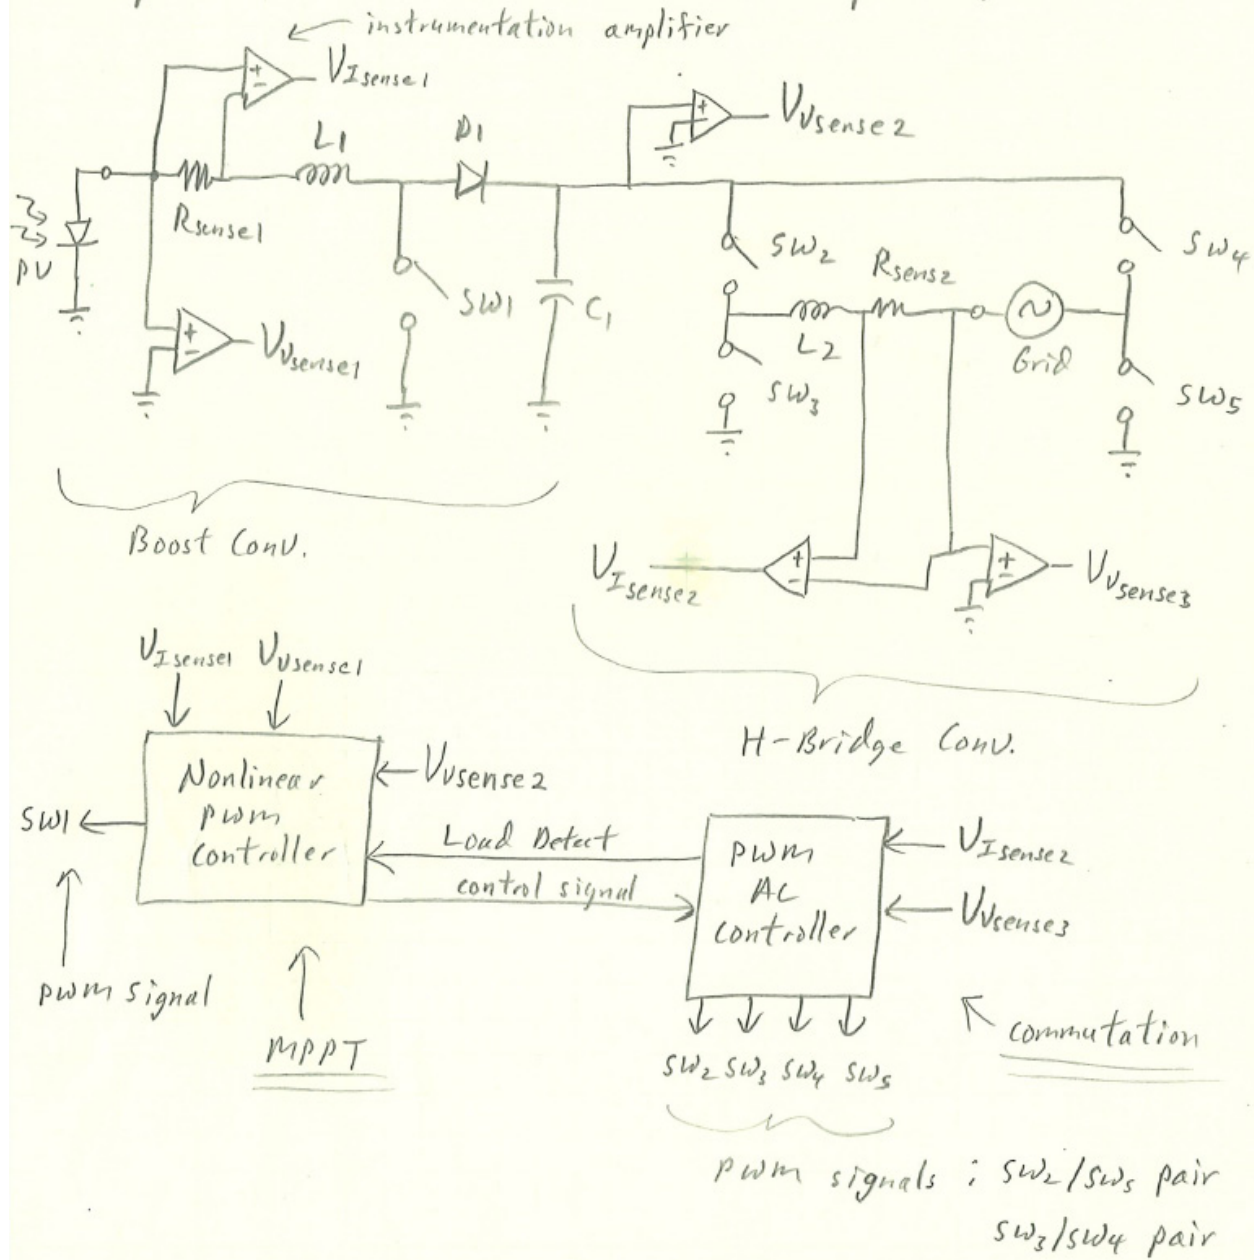 instrumentation amplifier
+
-
VIsense1
+
-
VVsense2
L1
D1
Rsense1
PV
SW1
C1
+
-
VVsense1
SW2
Rsens2
SW4
L2
Grid
SW3
SW5
Boost Conv.
VIsense2
+
-
+
-
VVsense3
H-Bridge Conv.
VIsense1 VVsense1
Nonlinear
PWM
Controller
VVsense2
SW1
Load Detect
control signal
PWM
AC
Controller
VIsense2
VVsense3
pwm signal
MPPT
commutation
SW2 SW3 SW4 SW5
pwm signals : SW2/SW5 pair
SW3/SW4 pair